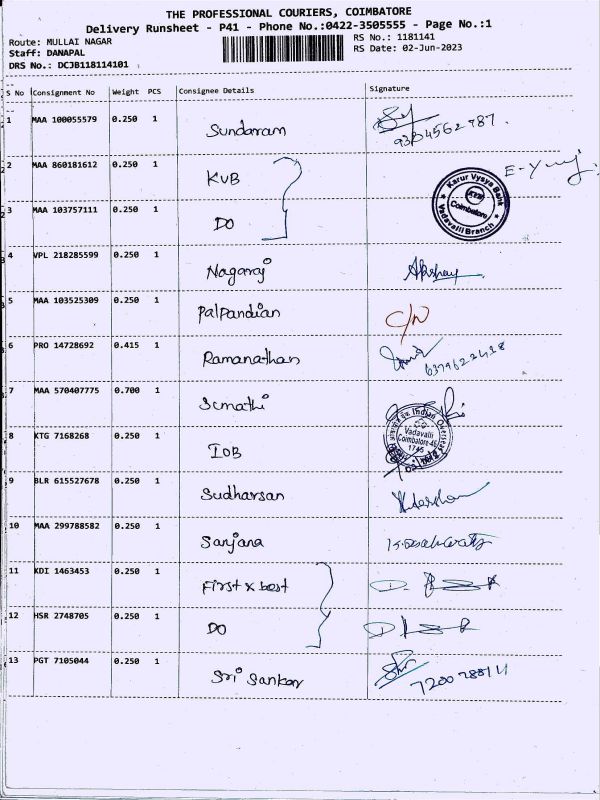 THE PROFESSIONAL COURIERS, COIMBATORE
Delivery Runsheet - P41 - Phone No.:0422-3505555 - Page No.:1
Route: MULLAI NAGAR
Staff: DANAPAL
DRS No.: DCJB118114101
RS No.: 1181141
RS Date: 02-Jun-2023
S No Consignment No Weight PCS Consignee Details Signature
1 MAA 100055579 0.250 1 Sundarram
2 MAA 860181612 0.250 1 KVB
3 MAA 103757111 0.250 1 DO
Karur Vysya Bank
KVB
Coimbatore
Vadavalli Branch
4 VPL 218285599 0.250 1 Nagaraj Akshay
5 MAA 103525309 0.250 1 Palpandian C/N
6 PRO 14728692 0.415 1 Ramanathan
7 MAA 570407775 0.700 1 Sumathi
8 KTG 7168268 0.250 1 IOB
Indian Overseas
Vadavalli
Coimbatore-41
1745
9 BLR 615527678 0.250 1 Sudharsan
10 MAA 299788582 0.250 1 Sanjana
11 KDI 1463453 0.250 1 First x best
12 HSR 2748705 0.250 1 DO
13 PGT 7105044 0.250 1 Sri Sankar